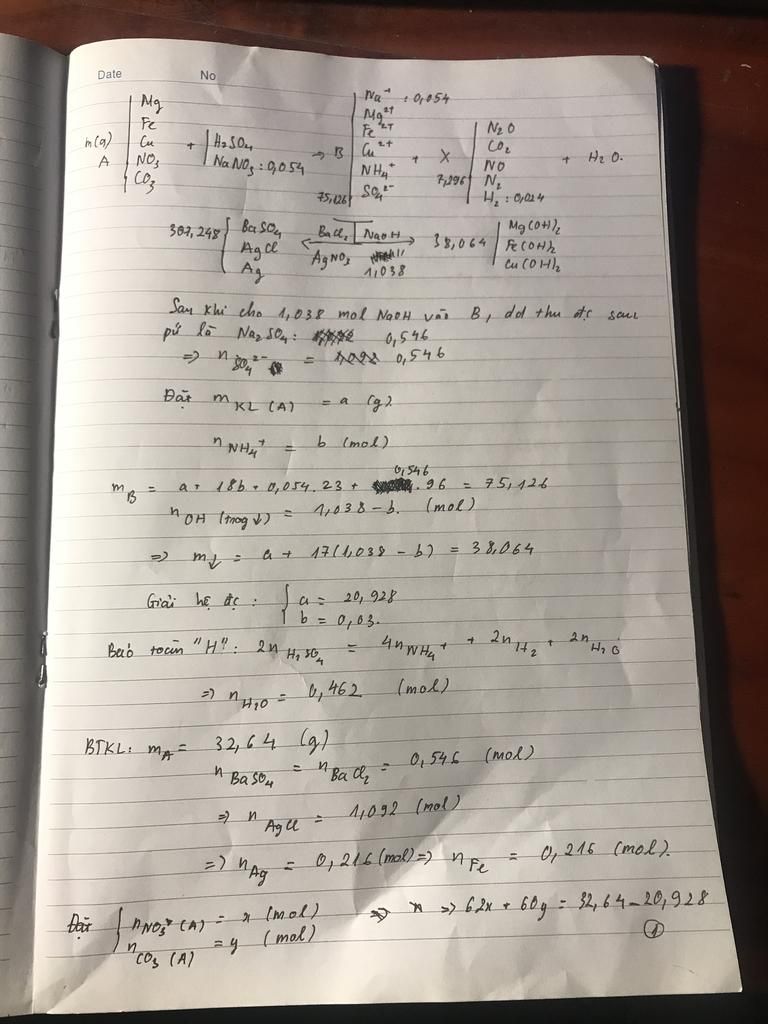 Date No
m(g) A | Mg Fe Cu NO₃ CO₃ + | H₂SO₄ NaNO₃ : 0,054 → B 75,126 | Na⁺ : 0,054 Mg²⁺ Fe²⁺ Cu²⁺ NH₄⁺ SO₄²⁻ + X 7,296 | N₂O CO₂ NO N₂ H₂ : 0,024 + H₂O.
307,248 { BaSO₄ AgCl Ag ← BaCl₂ AgNO₃ | NaOH 1,038 → 38,064 | Mg(OH)₂ Fe(OH)₂ Cu(OH)₂
Sau khi cho 1,038 mol NaOH vào B, dd thu đc sau
pứ là Na₂SO₄ : 0,546
=> n SO₄²⁻ = 0,546
Đặt m KL (A) = a (g)
n NH₄⁺ = b (mol)
m B = a + 18b + 0,054.23 + 0,546 . 96 = 75,126
n OH (trog ↓) = 1,038 - b. (mol)
=> m↓ = a + 17(1,038 - b) = 38,064
Giải hệ đc : { a = 20,928
b = 0,03.
Bảo toàn "H" : 2n H₂SO₄ = 4n NH₄⁺ + 2n H₂ + 2n H₂O
=> n H₂O = 0,462 (mol)
BTKL: m A = 32,64 (g)
n BaSO₄ = n BaCl₂ = 0,546 (mol)
=> n AgCl = 1,092 (mol)
=> n Ag = 0,216 (mol) => n Fe = 0,216 (mol).
Đặt { n NO₃ (A) = x (mol) => 62x + 60y = 32,64 - 20,928
n CO₃ (A) = y (mol) ①